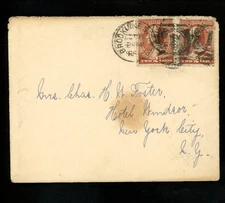 BROOKLYN
Mrs. Chas. H. W. Foster,
Hotel Windsor,
New York City,
N.Y.